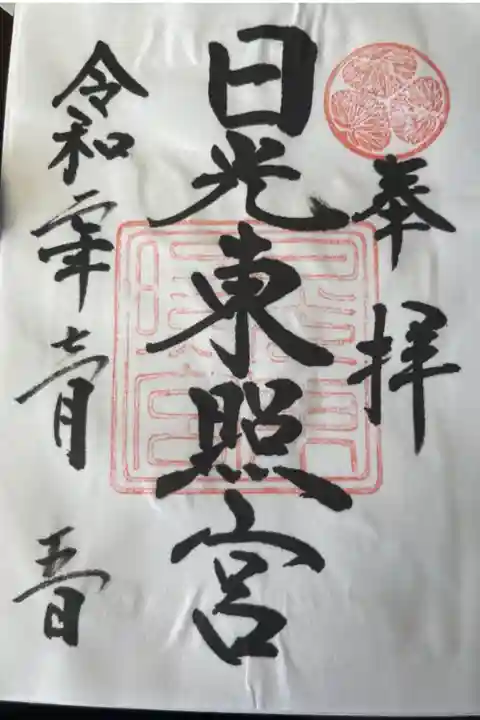 奉拝
日光東照宮
令和二年七月五日